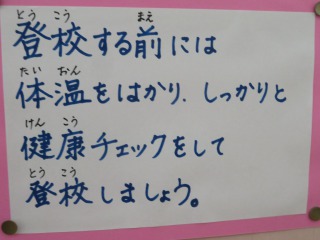 とう こう まえ
登校する前には
たい おん
体温をはかり、しっかりと
けん こう
健康チェックをして
とう こう
登校しましょう。